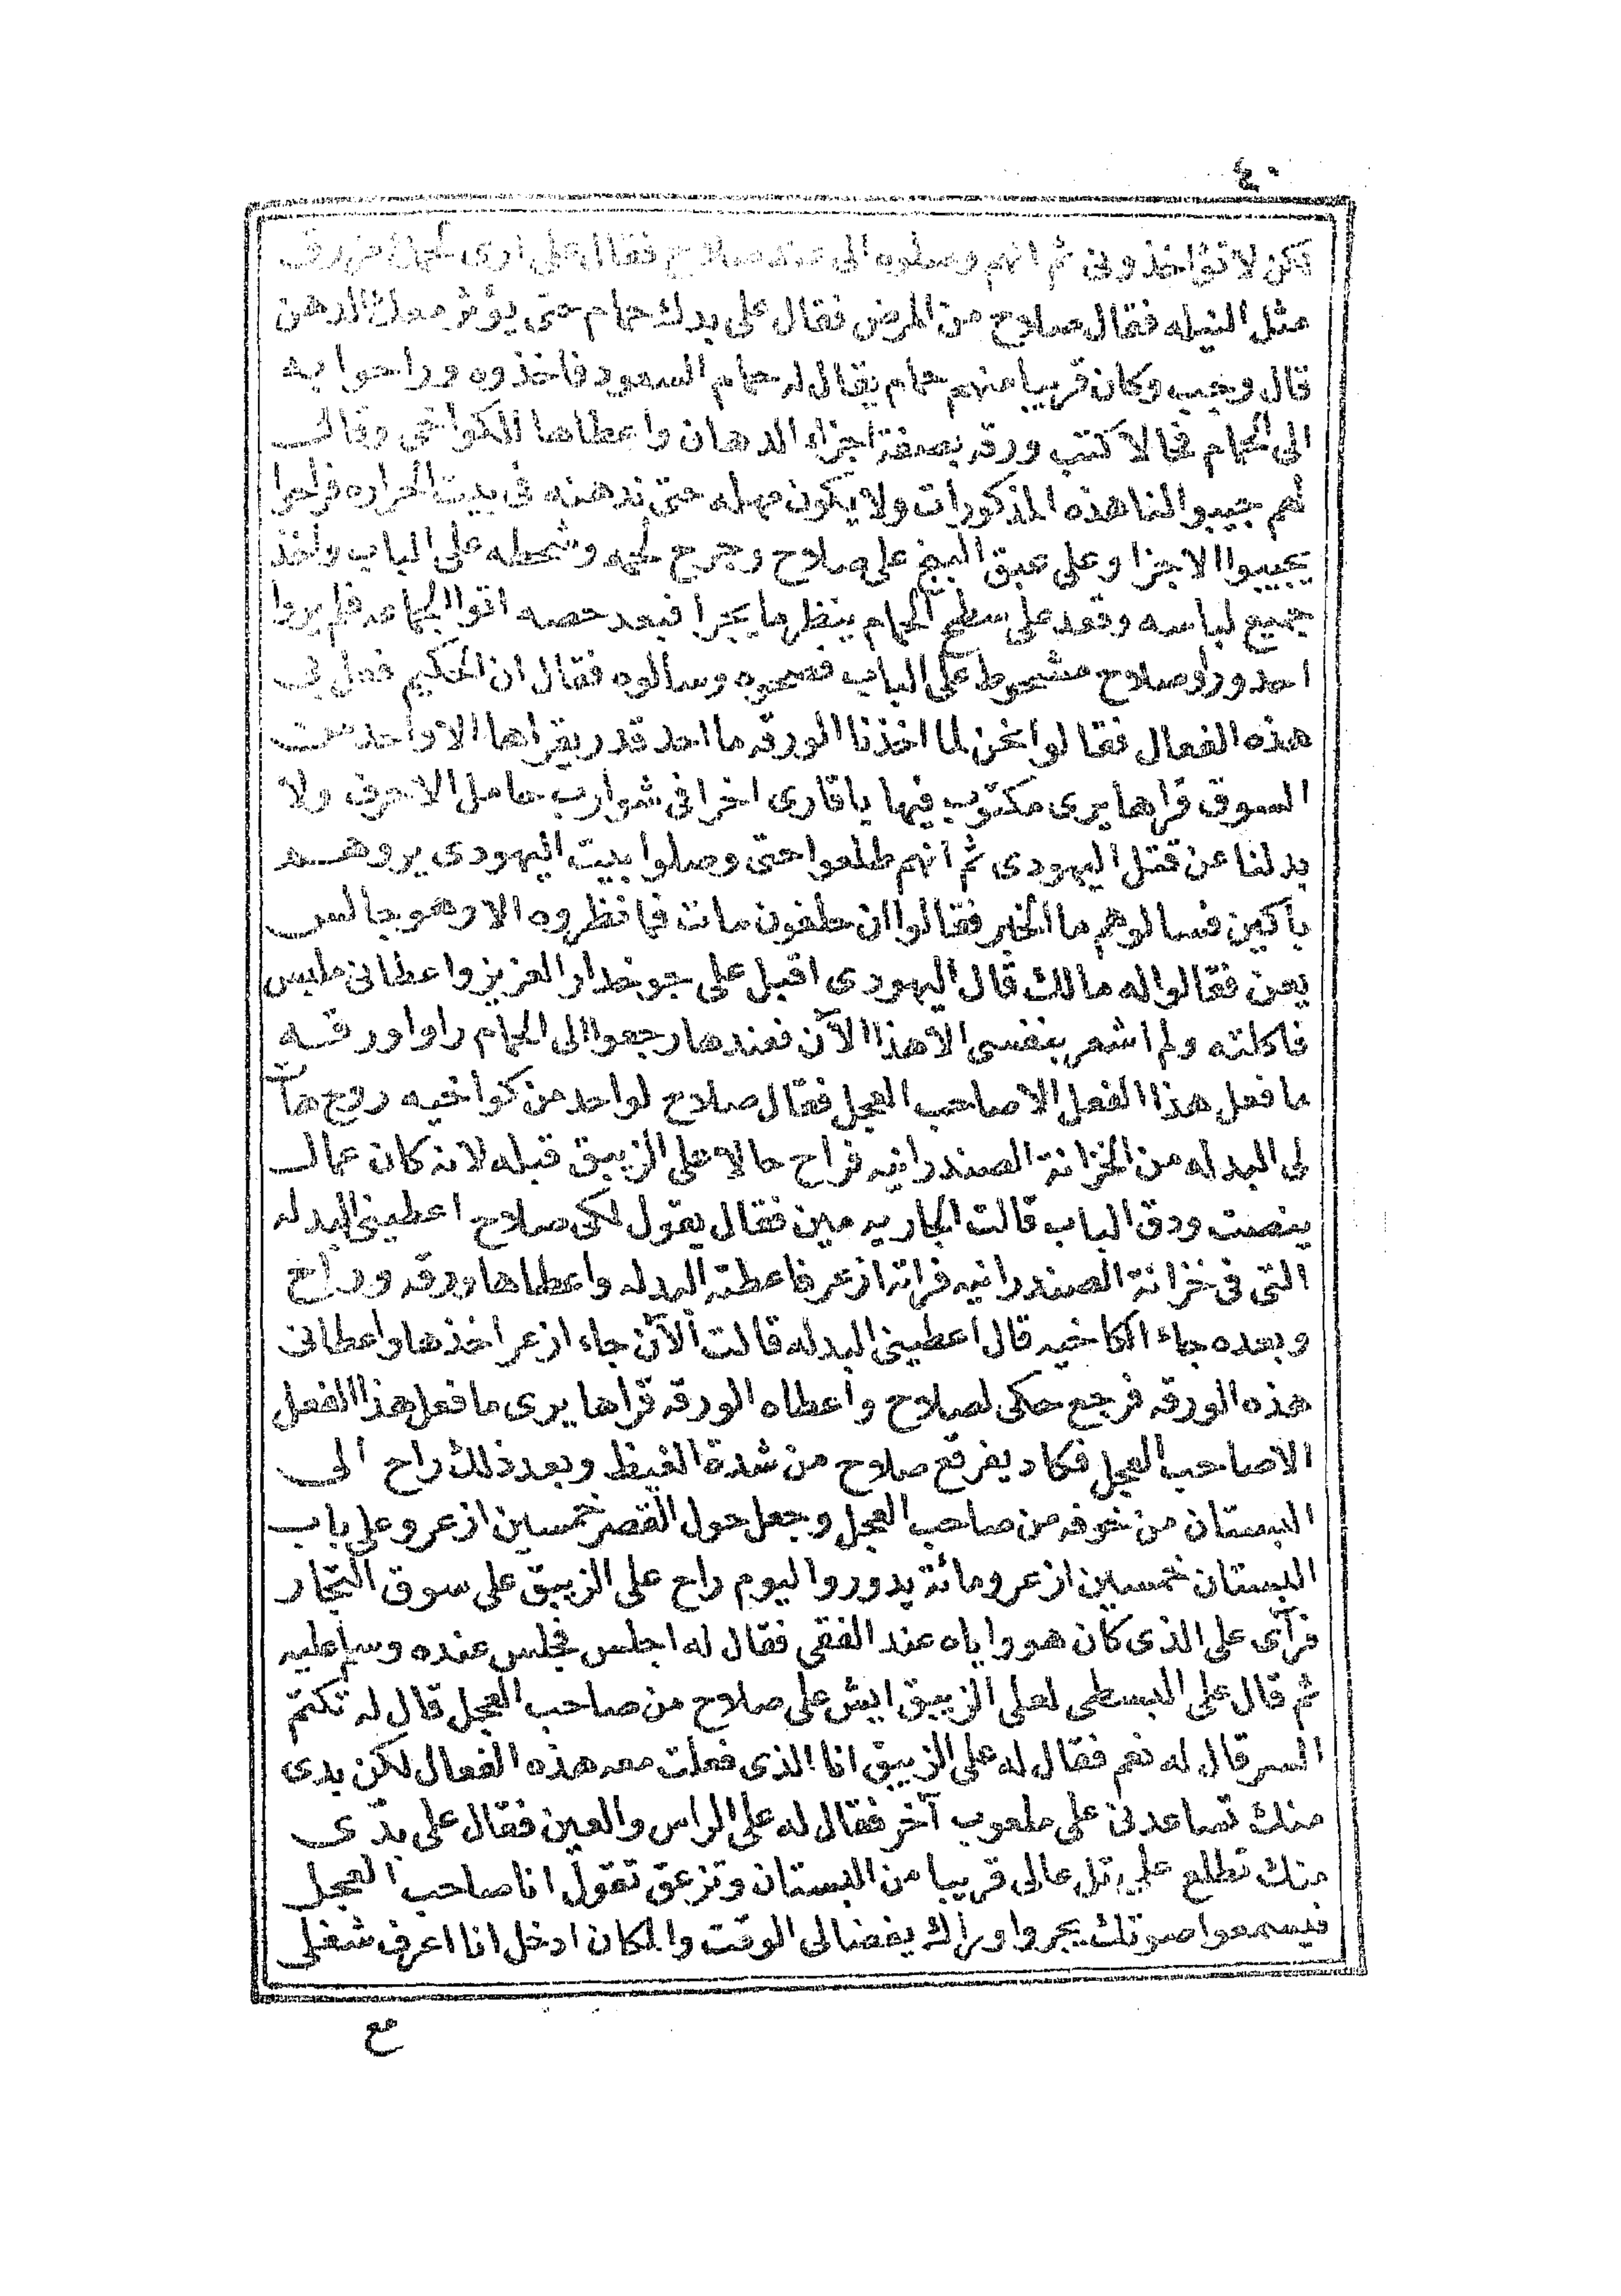 ٤٠
لكن لا تؤاخذونى ثم انهم وصلوه الى عند صلاح فقال على ارى لحمك مزرق
مثل النيله فقال صلاح من المرض فقال على بدك حمام حتى يؤثر معك الدهن
قال وجب وكان قريبا منهم حمام يقال له حمام السعود فاخذوه وراحوا به
الى الحمام فحالا كتب ورقه بصفة اجزاء الدهان واعطاها للكواخى وقال
لهم جيبوا لنا هذه المذكورات ولا يكون مهله حتى ندهنه فى بيت الحراره فراحوا
يجيبوا الاجزا وعلى عبق البنج على صلاح وجرح لحمه وشحطه على الباب واخذ
جميع لباسه وقعد على سطح الحمام ينظر ما يجرا فبعد حصه اتوا الجماعه فلم يروا
احد وراوا صلاح مشحوط على الباب فصحوه وسألوه فقال ان الحكيم فعل بى
هذه الفعال فقالوا نحن لما اخذنا الورقه ما احد قدر يقراها الا واحد من
السوق قراها يرى مكتوب فيها يا قارى اخرا فى شوارب حامل الاحرف ولا
بد لنا عن قتل اليهودى ثم انهم طلعوا حتى وصلوا بيت اليهودى يروهم
باكين فسالوهم ما الخبر فقالوا ان خلفون مات فانظروه الا وهو جالس
يعن فقالوا له مالك قال اليهودى اقبل على جوخدار العزيز واعطانى ملبس
فاكلته ولم اشعر بنفسى الا هذا الآن فعندها رجعوا الى الحمام راوا ورقه
ما فعل هذا الفعل الا صاحب العجل فقال صلاح لواحد من كواخيه روح هات
لى البدله من الخزانة الصندرانيه فراح حالا على الزيبق قبله لانه كان عمال
ينصت ودق الباب قالت الجاريه مين فقال يقول لكى صلاح اعطينى البدله
التى فى خزانة الصندرانيه فراته ازعر فاعطته البدله واعطاها ورقه وراح
وبعده جاء الكاخيه قال اعطينى البدله قالت الآن جاء ازعر اخذها واعطانى
هذه الورقه فرجع حكى لصلاح واعطاه الورقه قراها يرى ما فعل هذا الفعل
الا صاحب العجل فكاد يفرقع صلاح من شدة الغيظ وبعد ذلك راح الى
البستان من خوفه من صاحب العجل وجعل حول القصر خمسين ازعر وعلى باب
البستان خمسين ازعر ومائة يدوروا اليوم راح على الزيبق على سوق التجار
فرآى على الذى كان هو واياه عند الفقى فقال له اجلس فجلس عنده وسلم عليه
ثم قال على البسطى لعلى الزيبق ايش على صلاح من صاحب العجل قال له تكتم
السر قال له نعم فقال له على الزيبق انا الذى فعلت معه هذه الفعال لكن بدى
منك تساعدنى على ملعوب آخر فقال له على الراس والعين فقال على بدّى
منك تطلع على تل عالى قريبا من البستان وتزعق تقول انا صاحب العجل
فيسمعوا صوتك يجروا وراك يفضا لى الوقت والمكان ادخل انا اعرف شغلى
مع